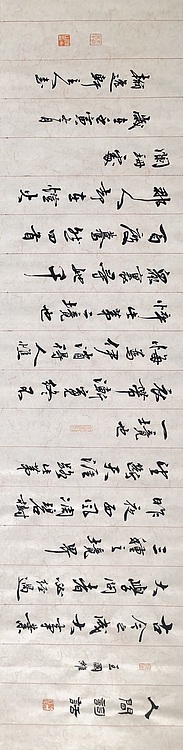 人間詞話
王國維
古今之成大事業
大學問者必經過
三種之境界
昨夜西風凋碧樹
望斷天涯路此第
一境也
衣帶漸寬終不
悔為伊消得人憔
悴此第二境也
眾裏尋他千
百度驀然回首
那人卻在燈火
闌珊處
歲在壬寅七月
軒主人書